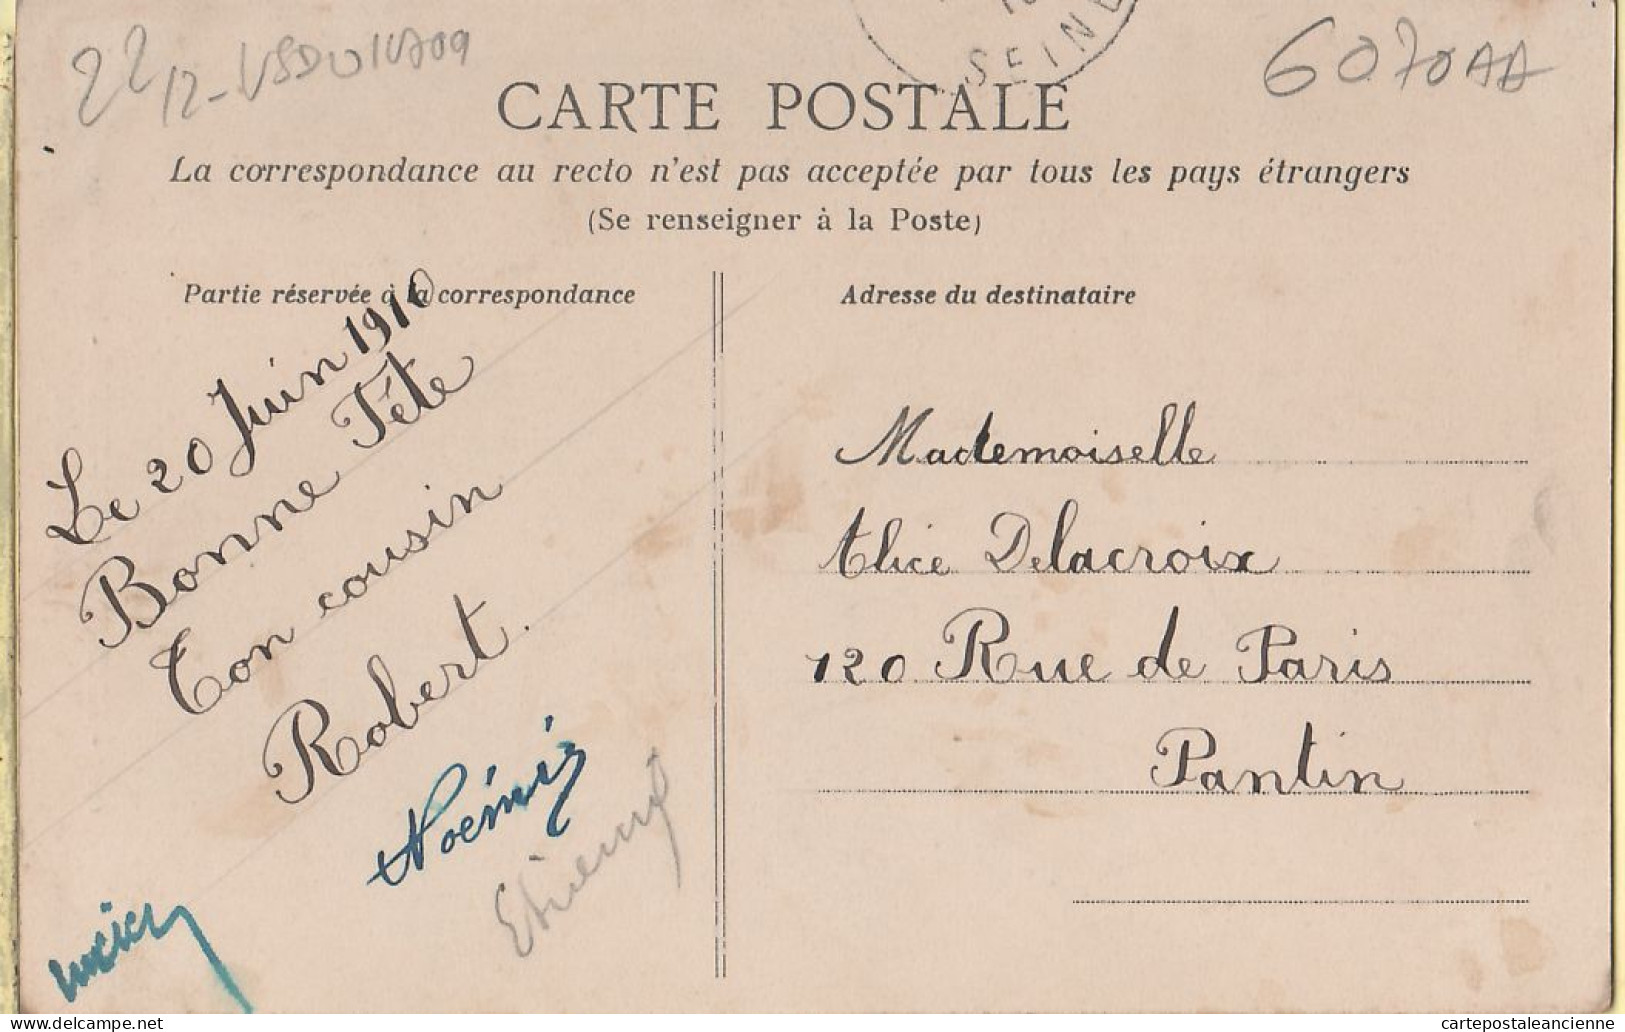 SEINE
6070AA
CARTE POSTALE
La correspondance au recto n'est pas acceptée par tous les pays étrangers
(Se renseigner à la Poste)
Partie réservée à la correspondance
Adresse du destinataire
Le 20 Juin 1910
Bonne Fête
Ton cousin
Robert.
Noémie
Etienne
Mademoiselle
Alice Delacroix
120 Rue de Paris
Pantin
delcampe.net
cartepostaleancienne